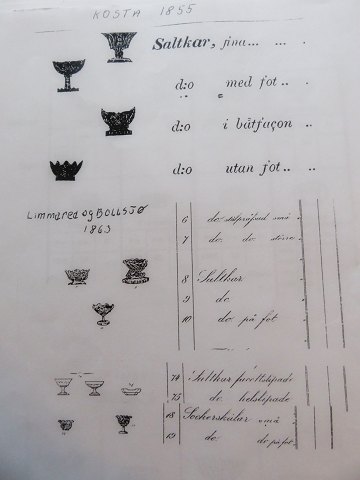 KOSTA 1855
Saltkar, fina... ... .
d:o med fot.. .
d:o i båtfaçon .. .
d:o utan fot.. ..
Limmared og BOLLSJØ
1863
6 do små
7 do. do. större
8 Saltkar
9 do
10 do. på fot
74 Saltkar
75 do. helslipade
18 Sockerskålar små
19 do do på fot.